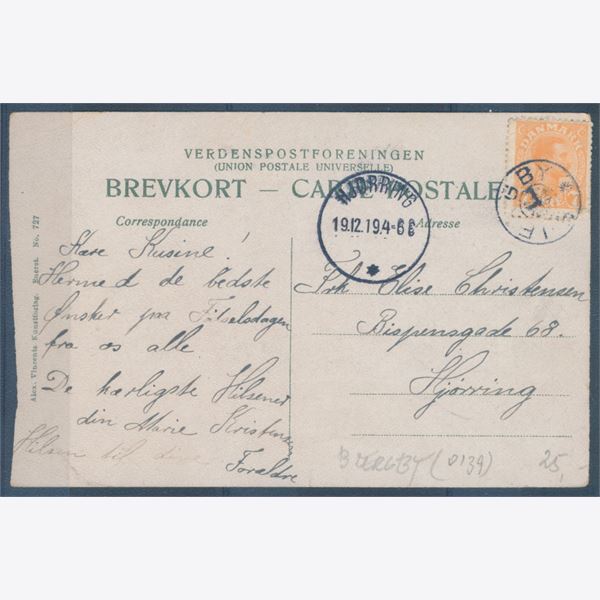 VERDENSPOSTFORENINGEN
(UNION POSTALE UNIVERSELLE)
BREVKORT — CARTE POSTALE
Correspondance
Adresse
DANMARK
HJØRRING
19.12.19.4-6 E
Alex. Vincents Kunstforlag. Eneret. No. 727
Kære Kusine!
Hermed de bedste
Ønsker paa Fødselsdagen
fra os alle
De kærligste Hilsener
din Marie Kristensen
Hilsen til dine
Forældre
Frk Elise Christensen
Bispensgade 68.
Hjørring
BJERGBY (0139)
25,-